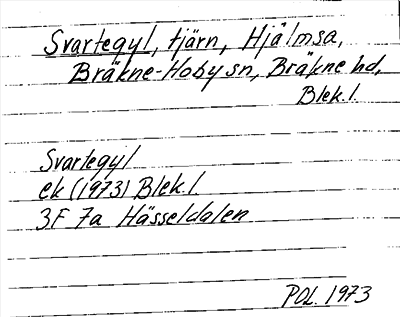 Svartegyl, tjärn, Hjälmsa,
Bräkne-Hoby sn, Bräkne hd,
Blek. l.
Svartegyl
ek (1973) Blek. l.
3F 7a Hässeldalen
POL. 1973